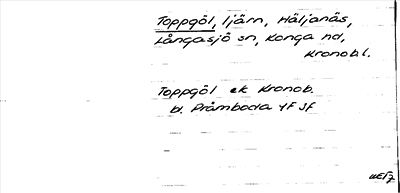 Toppgöl, tjärn, Häljanäs,
Långasjö sn, Konga hd,
Kronob.l.
Toppgöl ek Kronob.
bl. Pråmboda YF SF